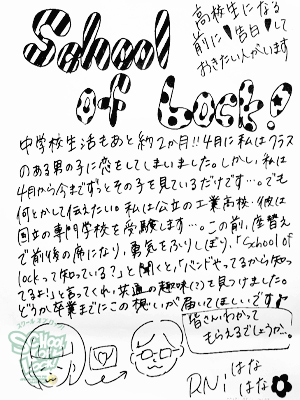 School
of Lock!
高校生になる
前に!告白!して
おきたい人がいます
中学校生活もあと約2か月!!4月に私はクラス
のある男の子に恋をしてしまいました。しかし、私は
4月から今まずっとその子を見ているだけです…。でも
何とかして伝えたい。私は公立の工業高校、彼は
国立の専門学校を受験します…。この前、席替え
で前後の席になり、勇気をふりしぼり、「School of
lockって知っている?」と聞くと、「バンドやってるから知っ
てるよ!」と言ってくれ、共通の趣味(?)を見つけました。
どうか卒業までにこの想いが届いてほしいです
皆さん、わかって
もらえるでしょうか…。
RN:はな
はな
SCHOOL OF LOCK!